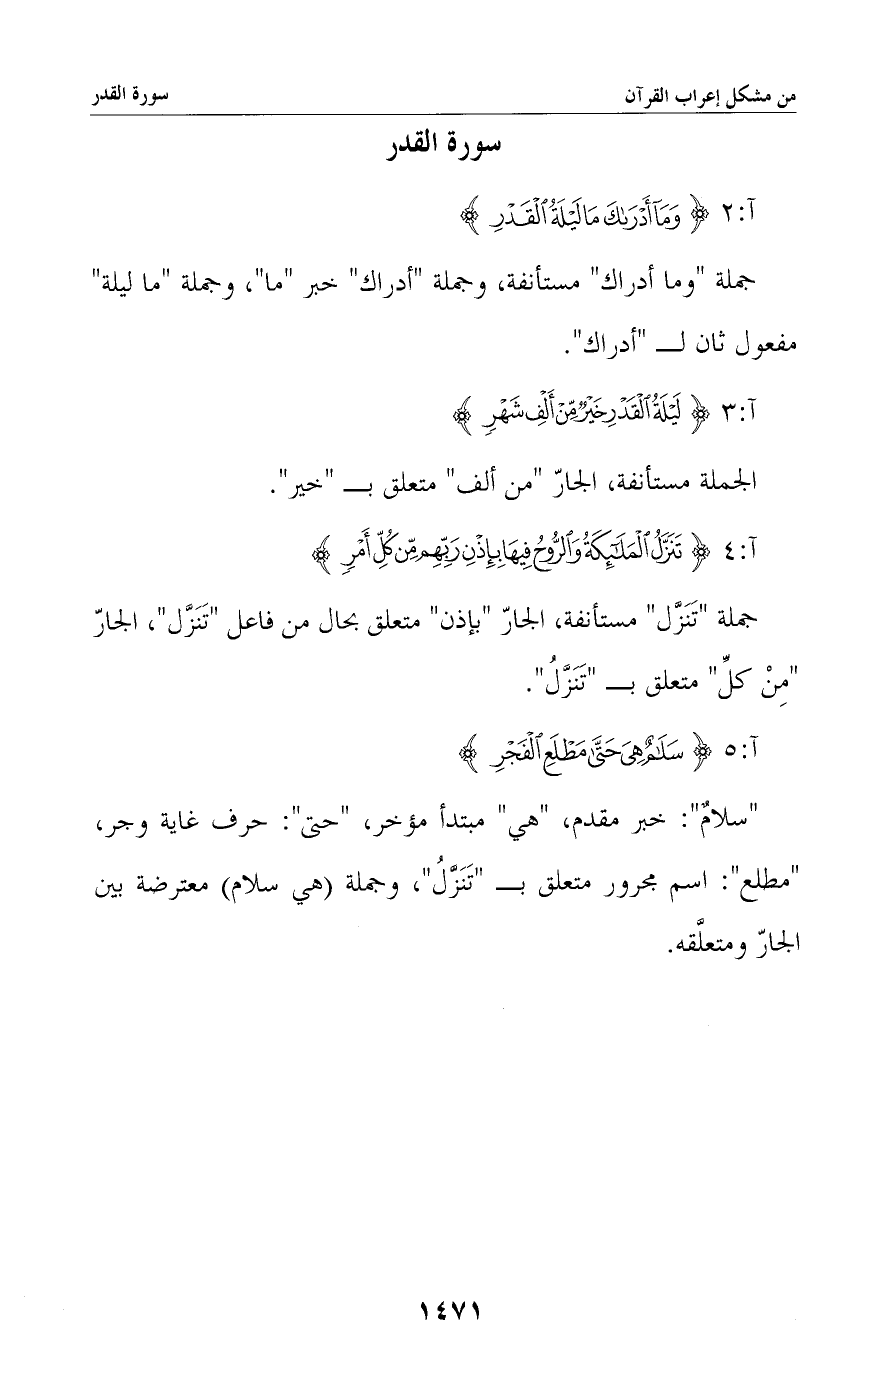 من مشكل إعراب القرآن سورة القدر
سورة القدر
آ:٢ ﴿ وَمَآ أَدْرَىٰكَ مَا لَيْلَةُ ٱلْقَدْرِ ﴾
جملة "وما أدراك" مستأنفة، وجملة "أدراك" خبر "ما"، وجملة "ما ليلة"
مفعول ثان لـــ "أدراك".
آ:٣ ﴿ لَيْلَةُ ٱلْقَدْرِ خَيْرٌ مِّنْ أَلْفِ شَهْرٍ ﴾
الجملة مستأنفة، الجارّ "من ألف" متعلق بـــ "خير".
آ:٤ ﴿ تَنَزَّلُ ٱلْمَلَٰٓئِكَةُ وَٱلرُّوحُ فِيهَا بِإِذْنِ رَبِّهِم مِّن كُلِّ أَمْرٍ ﴾
جملة "تَنَزَّل" مستأنفة، الجارّ "بإذن" متعلق بحال من فاعل "تَنَزَّل"، الجارّ
"مِنْ كلِّ" متعلق بـــ "تَنَزَّلُ".
آ:٥ ﴿ سَلَٰمٌ هِىَ حَتَّىٰ مَطْلَعِ ٱلْفَجْرِ ﴾
"سلامٌ": خبر مقدم، "هي" مبتدأ مؤخر، "حتى": حرف غاية وجر،
"مطلع": اسم مجرور متعلق بـــ "تَنَزَّلُ"، وجملة (هي سلام) معترضة بين
الجارّ ومتعلَّقه.
١٤٧١